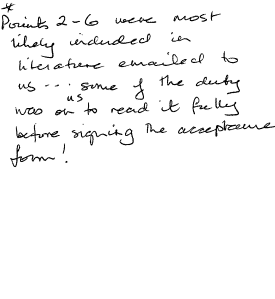 *
Points 2-6 were most
likely included in
literature emailed to
us --- some of the duty
was on us to read it fully
before signing the acceptance
form!